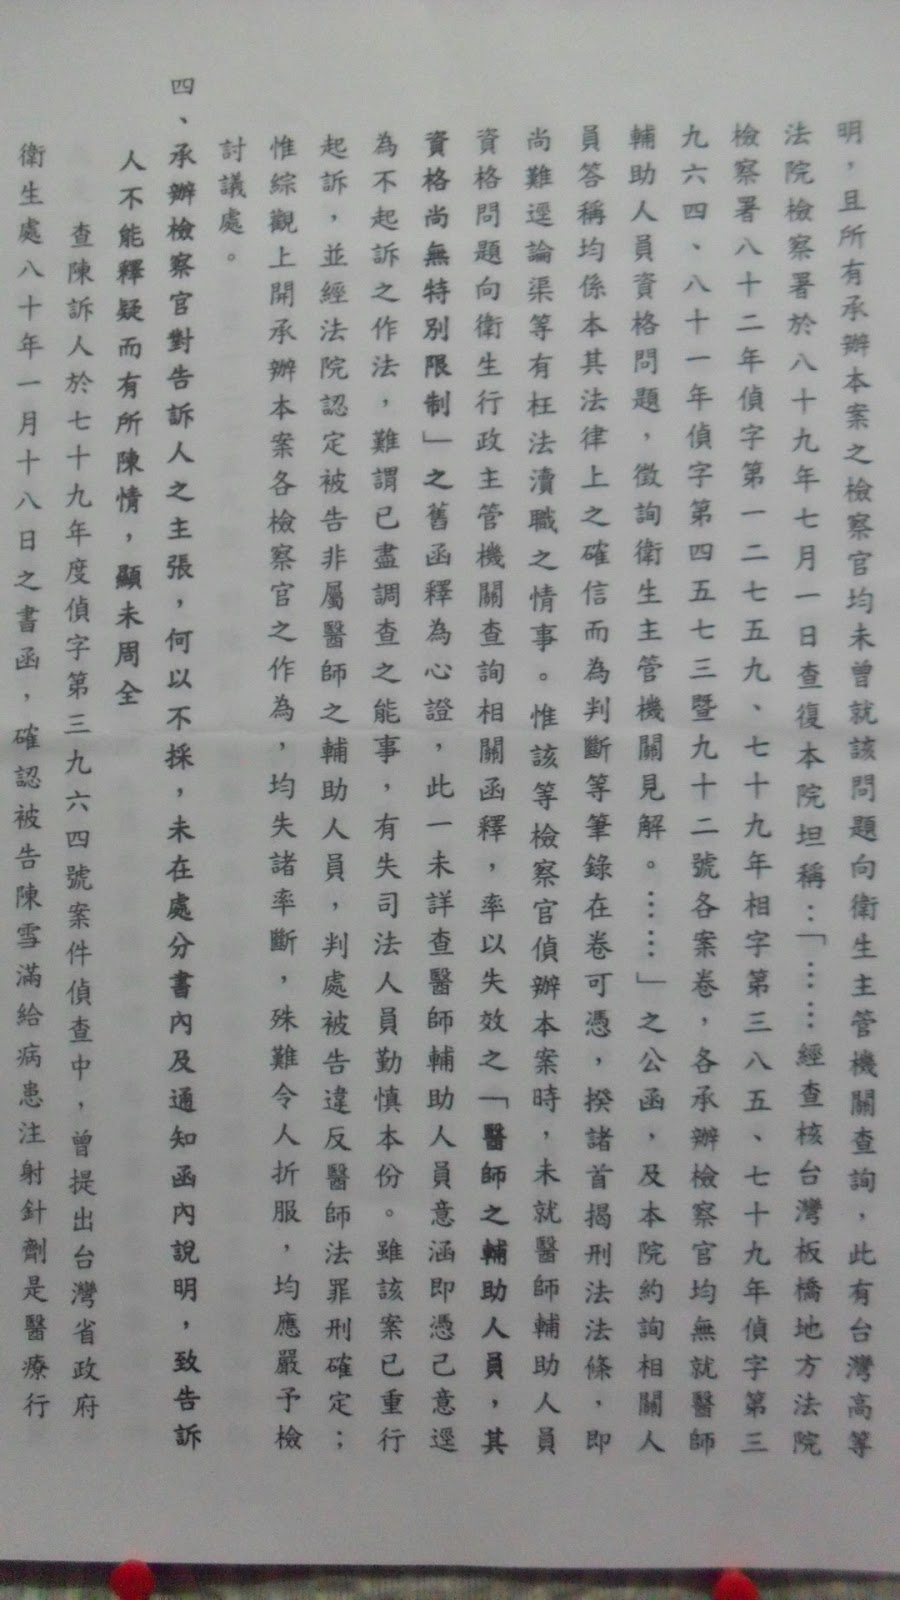 明，且所有承辦本案之檢察官均未曾就該問題向衛生主管機關查詢，此有台灣高等
法院檢察署於八十九年七月一日查復本院坦稱：「……經查核台灣板橋地方法院
檢察署八十二年偵字第一二七五九、七十九年相字第三八五、七十九年偵字第三
九六四、八十一年偵字第四五七三暨九十二號各案卷，各承辦檢察官均無就醫師
輔助人員資格問題，徵詢衛生主管機關見解。……」之公函，及本院約詢相關人
員答稱均係本其法律上之確信而為判斷等筆錄在卷可憑，揆諸首揭刑法法條，即
尚難逕論渠等有枉法瀆職之情事。惟該等檢察官偵辦本案時，未就醫師輔助人員
資格問題向衛生行政主管機關查詢相關函釋，率以失效之「醫師之輔助人員，其
資格尚無特別限制」之舊函釋為心證，此一未詳查醫師輔助人員意涵即憑己意逕
為不起訴之作法，難謂已盡調查之能事，有失司法人員勤慎本份。雖該案已重行
起訴，並經法院認定被告非屬醫師之輔助人員，判處被告違反醫師法罪刑確定；
惟綜觀上開承辦本案各檢察官之作為，均失諸率斷，殊難令人折服，均應嚴予檢
討議處。
四、承辦檢察官對告訴人之主張，何以不採，未在處分書內及通知函內說明，致告訴
人不能釋疑而有所陳情，顯未周全
查陳訴人於七十九年度偵字第三九六四號案件偵查中，曾提出台灣省政府
衛生處八十年一月十八日之書函，確認被告陳雪滿給病患注射針劑是醫療行